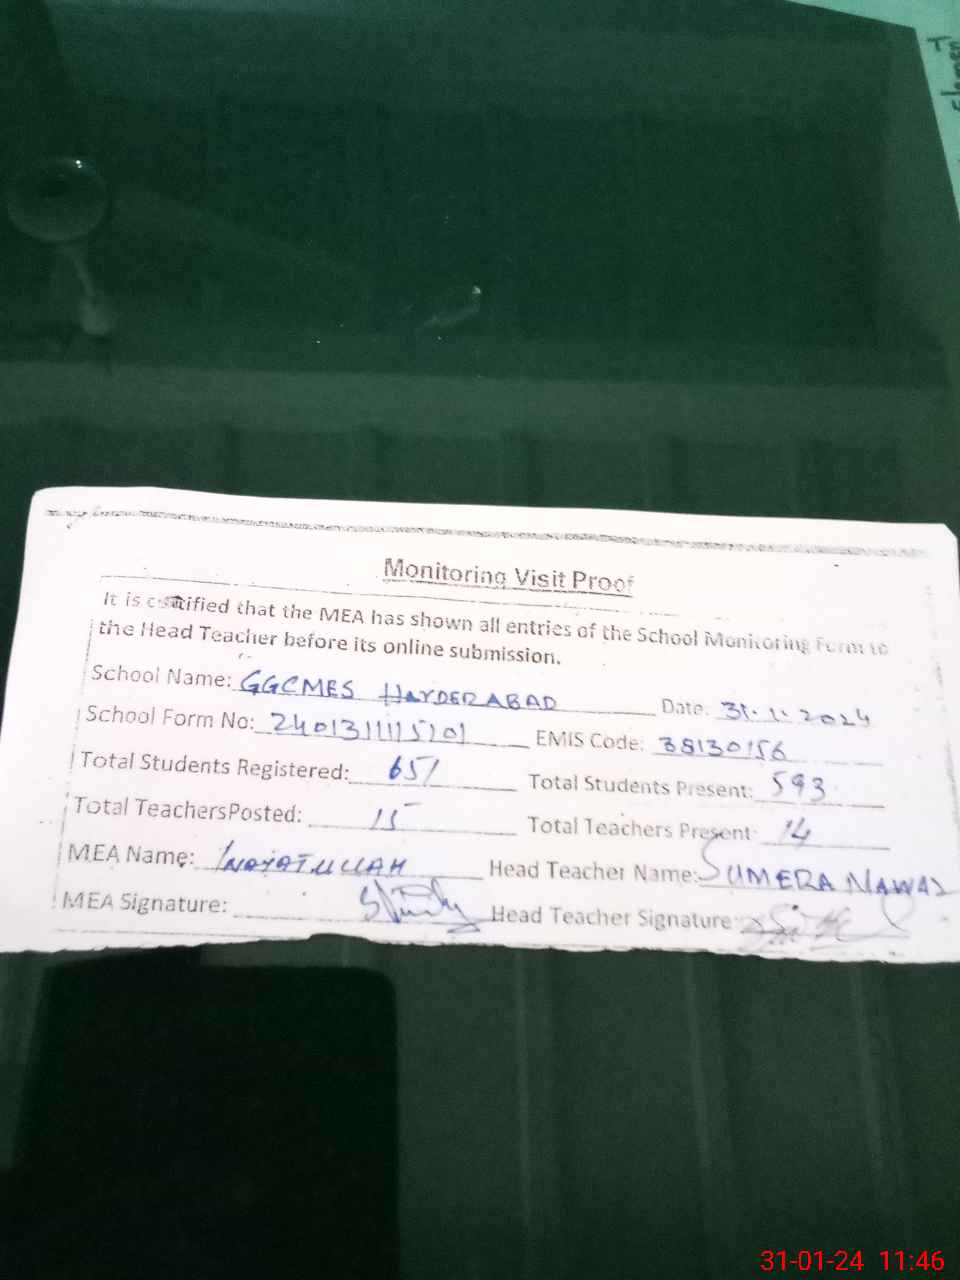 Monitoring Visit Proof
It is certified that the MEA has shown all entries of the School Monitoring Form to
the Head Teacher before its online submission.
School Name: GGCMES HAYDERABAD Date: 31.1.2024
School Form No: 2401311115101 EMIS Code: 38130156
Total Students Registered: 651 Total Students Present: 593
Total TeachersPosted: 15 Total Teachers Present: 14
MEA Name: INAYATULLAH Head Teacher Name: SUMERA NAWAZ
MEA Signature: Head Teacher Signature:
31-01-24 11:46